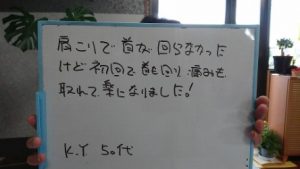 肩こりで首が回らなかった
けど初回で首も回り、痛みも
取れて楽になりました!
K.Y 50代